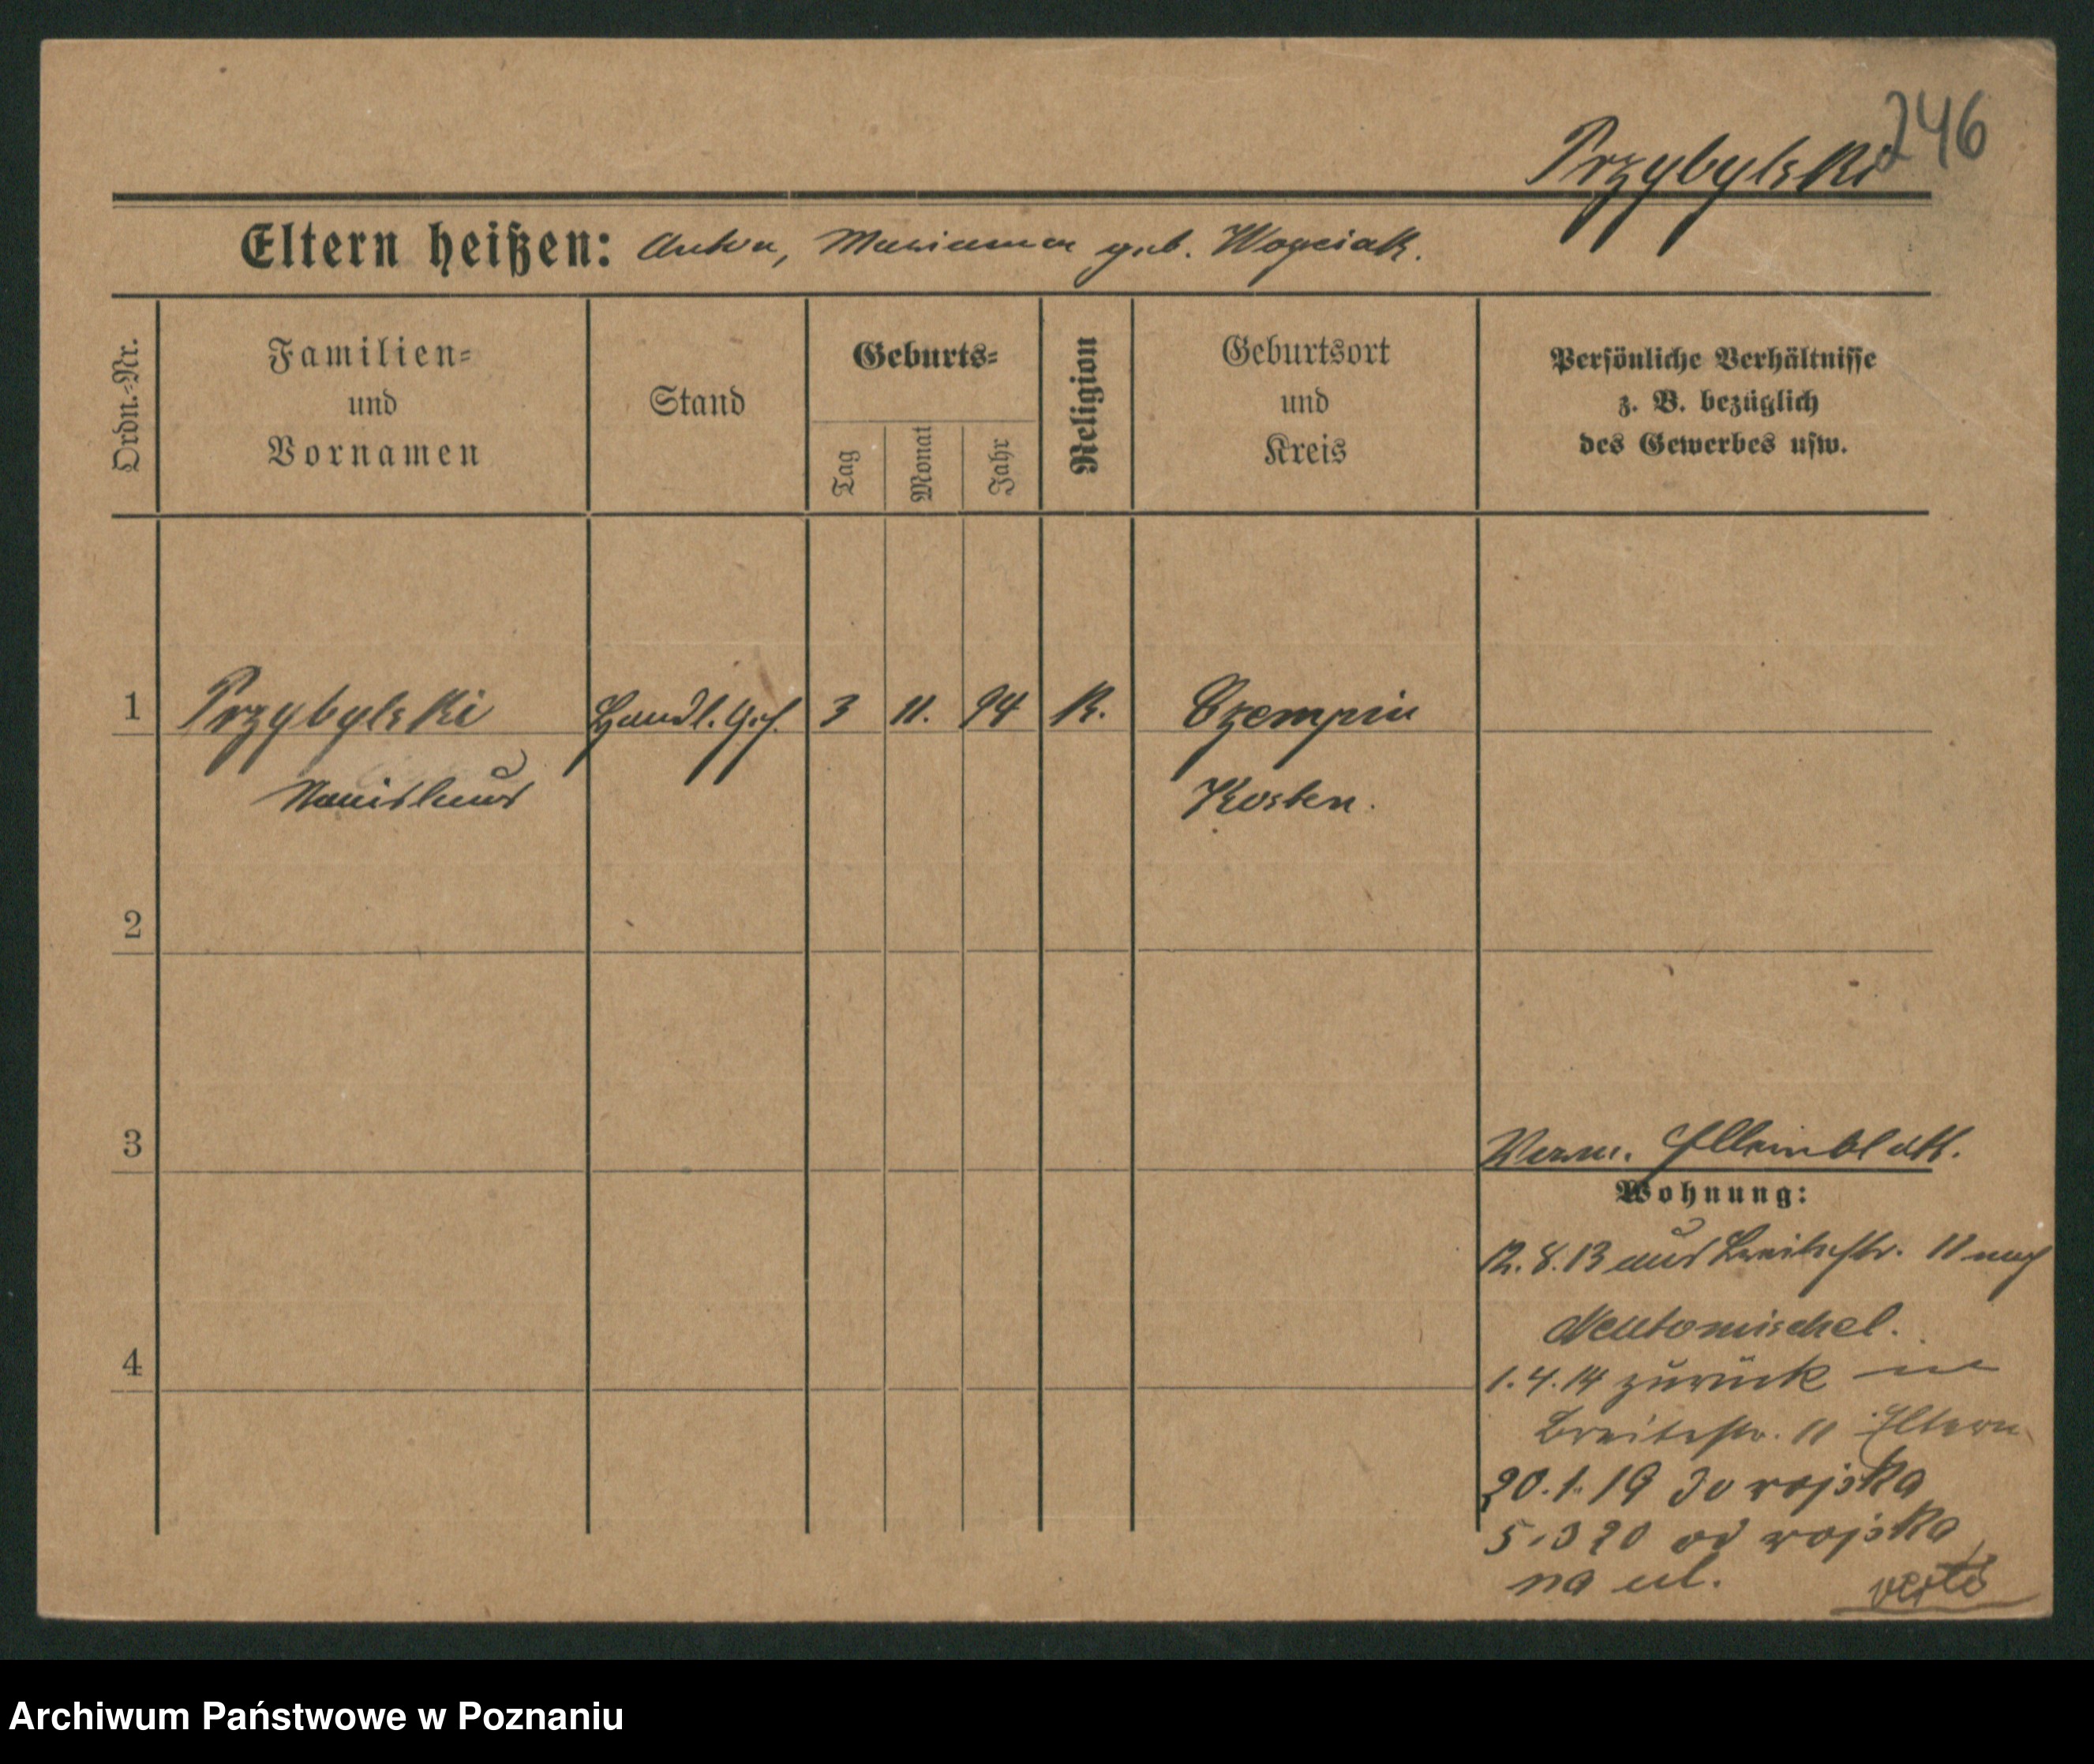 246
Przybylski
Eltern heißen: Anton, Marianna geb. Woyciak.
Ordn.-Nr.
Familien-
und
Vornamen
Stand
Geburts-
Tag
Monat
Jahr
Religion
Geburtsort
und
Kreis
Persönliche Verhältnisse
z. B. bezüglich
des Gewerbes usw.
1 Przybylski Handl. Geh. 3 11. 94 K. Czempin
Stanislaus Kosten.
2
3
Verm. Elternblatt.
Wohnung:
12.8.13 aus Breitestr. 11 nach
Neutomischel.
4
1.4.14 zurück
Breitestr. 11 Eltern
20.1.19 do wojska
5.3 20 od wojska
na ul. verte
Archiwum Państwowe w Poznaniu